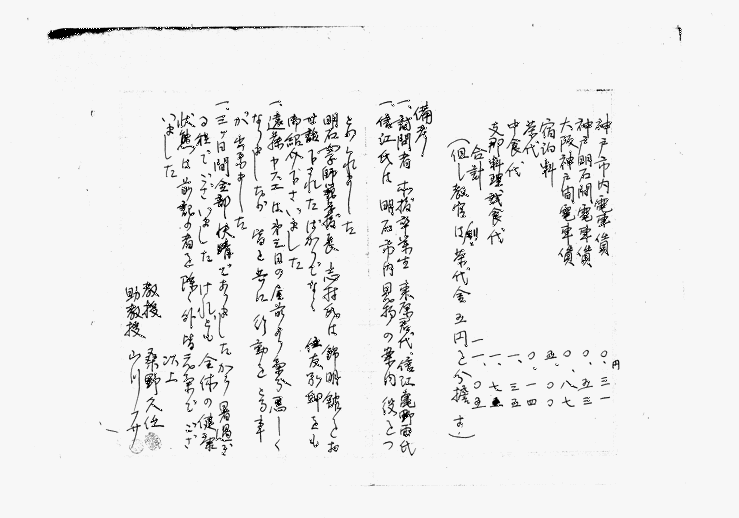 神戸市内電車賃 〇.三一
神戸明石間電車賃 〇.五三
大阪神戸間電車賃 〇.八七
宿泊料 五.〇〇
茶代 〇.一四
中食代 一.三五
支那料理試食代 一.七五
合計 一一.〇五
円
(但し教官は 茶代金五円を分擔す)
備考
一、訪問者 本校卒業生 信江 氏
一、信江氏は 明石市内見物の案内役をつ
とめられました
明石 校長 志村氏は錦明館をお
世話下されたばかりでなく 住友別邸をも
御紹介下さいました
一、遠藤ヤスエは第三日の午前より気分悪しく
なりましたが 皆と共に行動をとる事
が出来ました
一、三ヶ日間全部快晴でありましたから暑過ぎ
る程でございました けれども全体の健康
状態は前記の者を除く外皆元気でござ
いました
以上
教授 桑野久任
助教授 山川